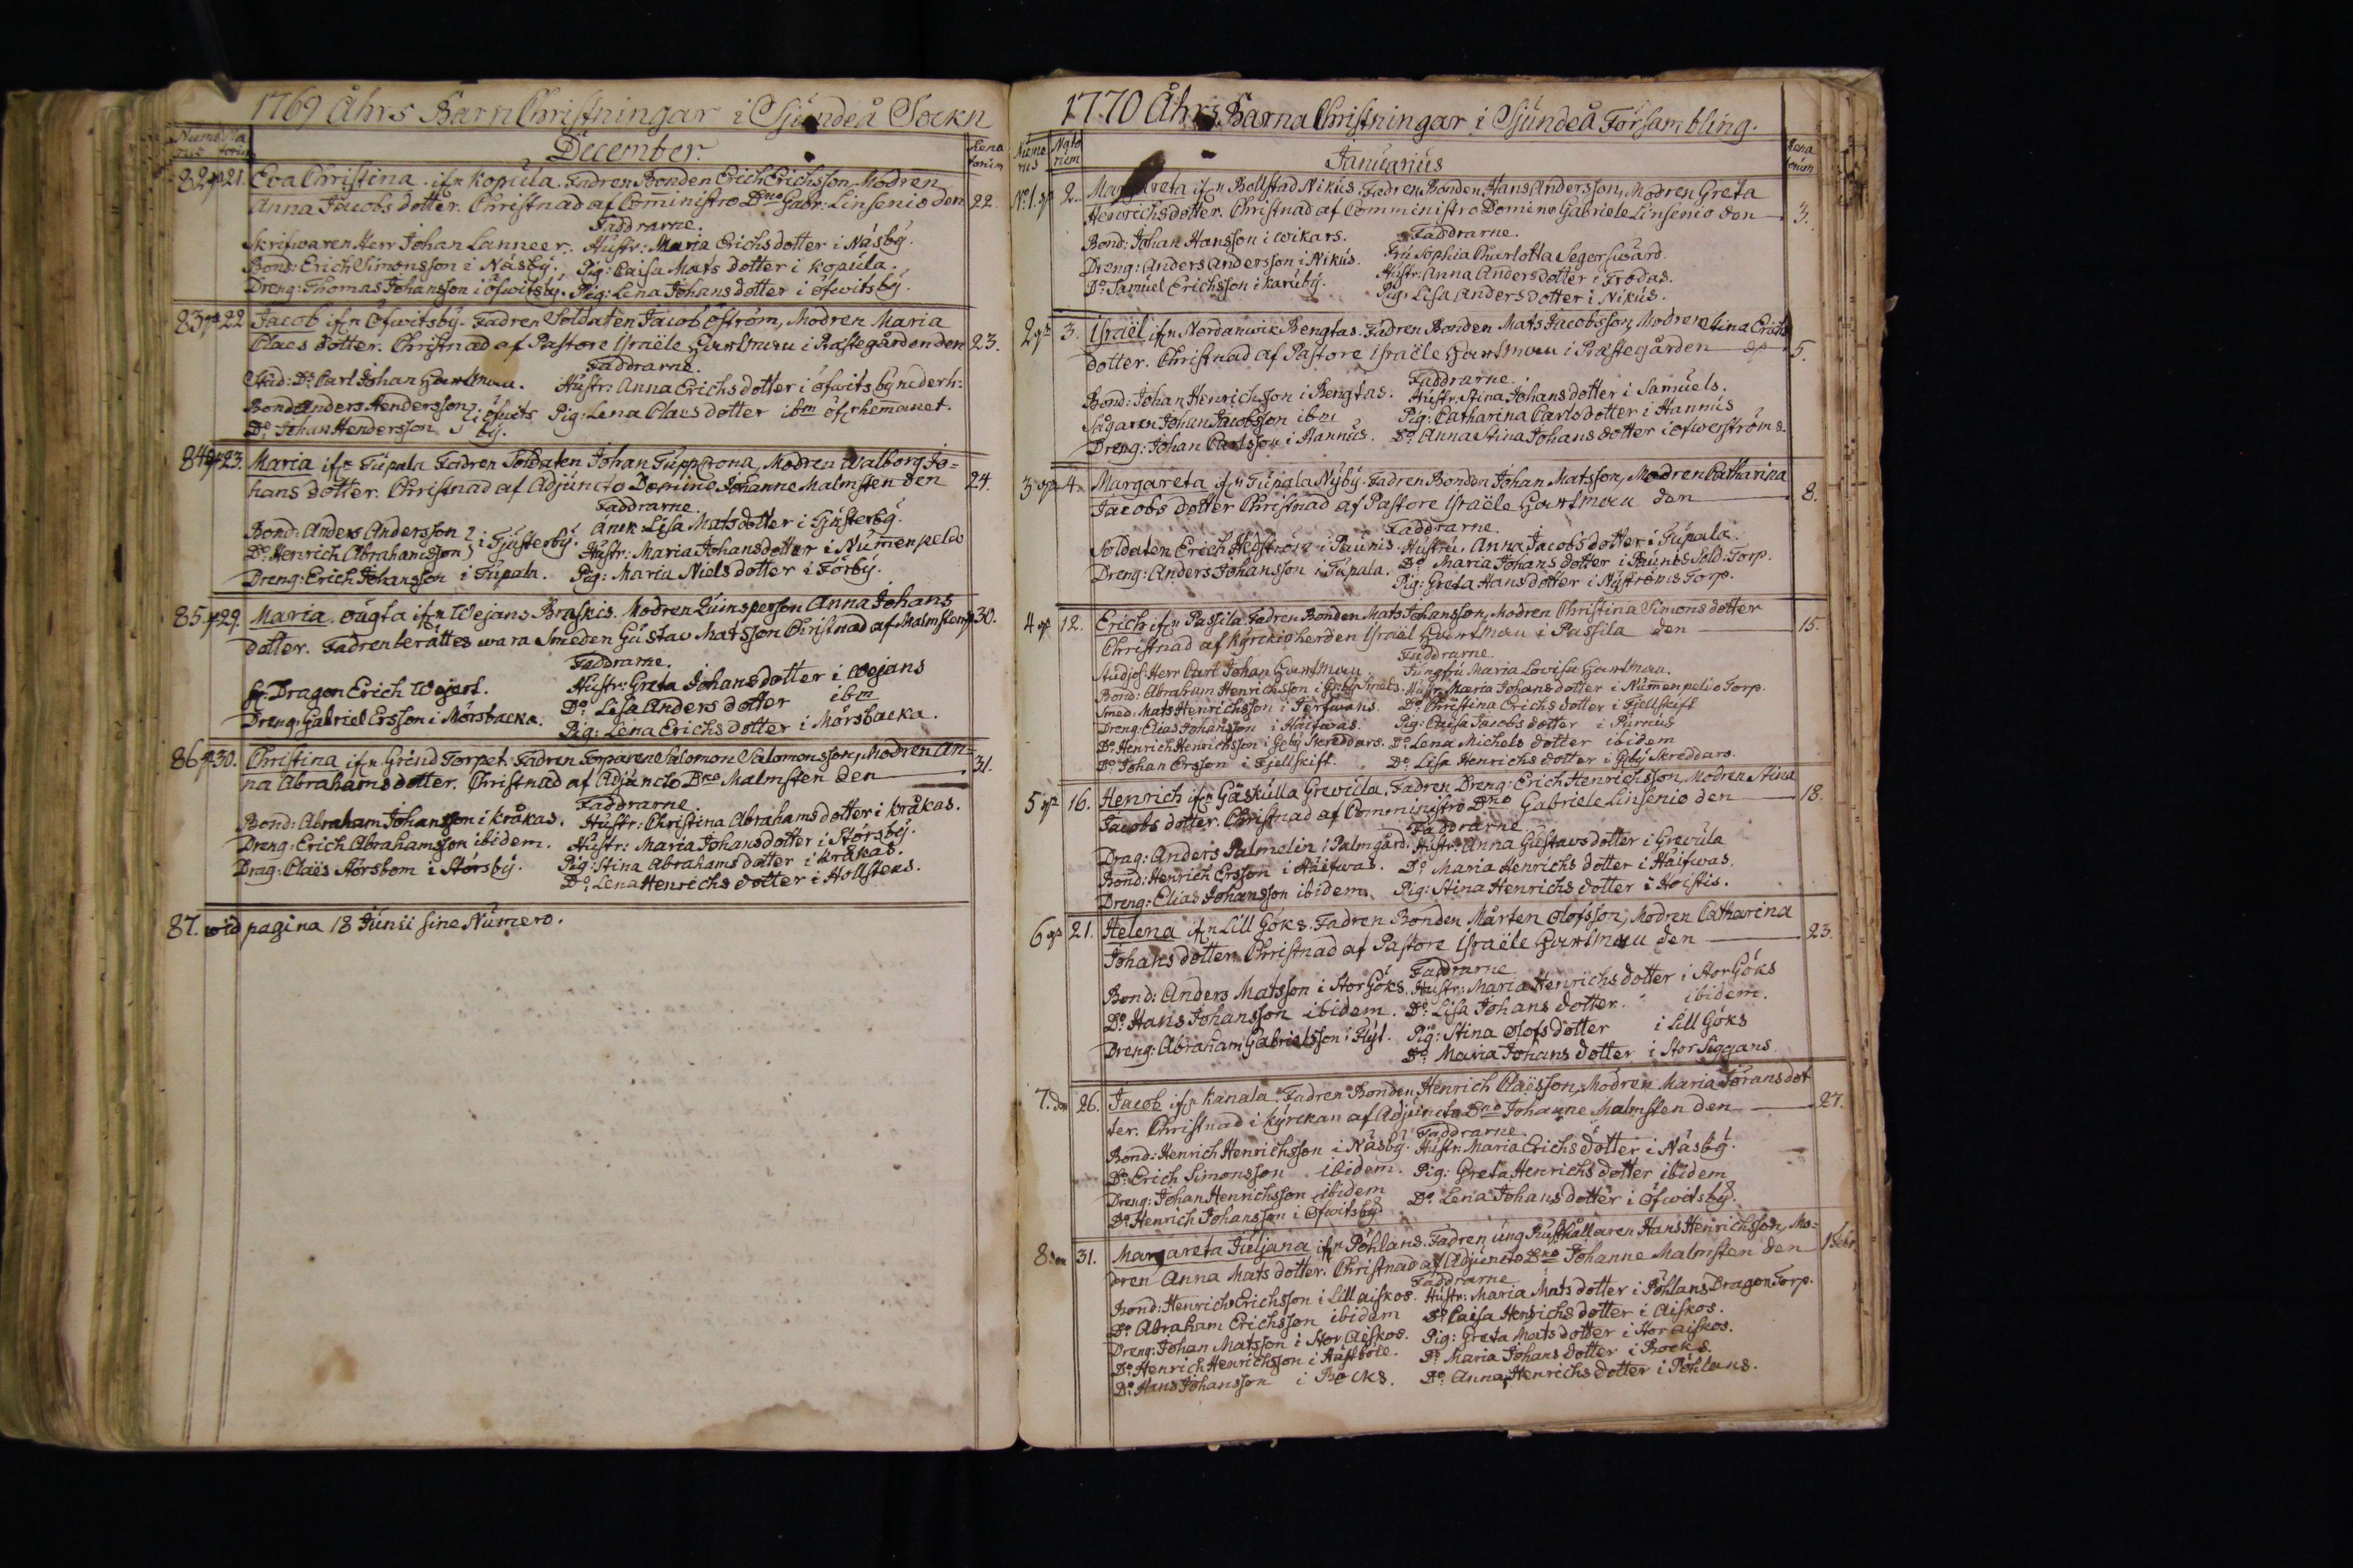 1769 Åhrs Barn Christningar i Sjundeå Sockn
Numerus Natorum December. Renatorum
82 21. Eva Christina ifrn Kopula. Fadren Bonden Erich Erichsson Modren
Anna Jacobs dotter. Christnad af Cominístro Dno Gabr: Linsenio den 22.
Faddrarne.
Skrifwaren Herr Johan Lanneer. Hustr: Maria Erichsdotter i Näsby.
Bond: Erich Simonsson i Näsby. Pig: Caisa Mats dotter i Kopula.
Dreng: Thomas Johansson i Öfwitsby. Pig: Lena Johans dotter i Öfwitsby.
83 22 Jacob ifrn Öfwitsby. Fadren Soldaten Jacob Öström, Modren Maria
Claes dotter. Christnad af Pastore Israële Hartman i Prästegården den 23.
Faddrarne.
Stud: Do Carl Johan Hartman. Hustr: Anna Erichs dotter i Öfwitsby nederh:
Bond Anders Hendersson } i Öfwits Pig: Lena Claes dotter ibm öfrhemanet.
Do Johan Hendersson } by.
84 23. Maria ifrn Tupala Fadren Soldaten Johan Tuppcrona, Modren Walborg Jo=
hans dotter. Christnad af Adjuncto Domino Johanne Malmsten den 24.
Faddrarne.
Bond: Anders Andersson } i Tjusterby. Lisa Mats dotter i Tjusterby.
Do Henrich Abrahamsson } Hustr: Maria Johansdotter i Nummenpeldo
Dreng: Erich Johansson i Tupala. Pig: Maria Niels dotter i Förby.
85 29. Maria. oägta ifrn Wejans Braskis. Modren Quinsperson Anna Johans
dotter. Fadren berättes wara Smeden Gustav Matsson Christnad af Malmsten 30.
Faddrarne.
Dragon Erich Wejert. Hustr: Greta Johansdotter i Wejans
Do Lisa Anders dotter ibm
Dreng: Gabriel Ersson i Mörsbacka. Pig: Lena Erichs dotter i Mörsbacka.
86 30. Christina ifrn Grind Torpet. Fadren Torparen Salomon Salomonsson, Modren An=
na Abrahams dotter. Christnad af Adjuncto Dno Malmsten den 31.
Faddrarne
Bond: Abraham Johansson i Kråkas. Hustr: Christina Abrahams dotter i Kråkas.
Dreng: Erich Abrahamsson ibidem. Hustr: Maria Johansdotter i Störsby.
Drag: Claës Störsbom i Störsby. Pig: Stina Abrahams dotter i Kråkas.
Do Lena Henrichs dotter i Hollstens.
87. wid pagina 18 Junii sine Numero.
1770 Åhrs Barna Christningar i Sjundeå Försambling.
Numerus Natorum Januarius Renatorum
No 1. 2. Margareta ifrn Bollstad Nikus. Fadren Bonden Hans Andersson, Modren Greta
Henrichsdotter. Christnad af Comministro Domino Gabriele Linsenio den 3.
Faddrarne.
Bond: Johan Hansson i Wikars. Fru Sophia Charlotta Segersward.
Dreng: Anders Andersson i Nikus. Hustr: Anna Andersdotter i Frodas.
Do Samuel Erichsson i Karuby. Pig: Lisa Anders dotter i Nikus.
2 3. Israël ifrn Nordanwik Bengtas. Fadren Bonden Mats Jacobsson, Modren Stina Erichs
dotter. Christnad af Pastore Israële Hartman i Prästegården 5.
Faddrarne.
Bond: Johan Henrichsson i Bengtas. Hustr: Stina Johans dotter i Samuels.
Sågaren Johan Jacobsson ibm Pig: Catharina Carlsdotter i Hannus
Dreng: Johan Carlsson i Hannus. Do Anna Stina Johans dotter i Öfwerströms.
3 4. Margareta ifrn Tupala Nyby. Fadren Bonden Johan Matsson, Modren Catharina
Jacobs dotter Christnad af Pastore Israële Hartman den 8.
Faddrarne.
Soldaten Erich Hedström i Paunis. Hustru. Anna Jacobs dotter i Tupala.
Dreng: Anders Johansson i Tupala. Do Maria Johans dotter i Paunis Sold: Torp.
Pig: Greta Hansdotter i Nyströms Torp.
4 12. Erich ifrn Passila Fadren Bonden Mats Johansson, Modren Christina Simons dotter
Christnad af Kyrckioherden Israël Hartman i Passila den 15.
Faddrarne.
Studios: Herr Carl Johan Hartman Jungfru Maria Lovisa Hartman.
Bond: Abraham Henrichsson i Smeds. Hustr: Maria Johans dotter i Nummenpelio Torp.
Smed: Mats Henrichsson i Jerfwans. Do Christina Erichs dotter i Fjellskift
Dreng: Elias Johansson i Häifwas. Pig: Caisa Jacobs dotter i Purnus
Do Henrich Henrichsson i Geby Skreddars. Do Lena Michels dotter ibidem
Do Johan Ersson i Fjellskift. Do Lisa Henrichs dotter i Geby Skreddars.
5 16. Henrich ifrn Gäskulla Grevula. Fadren Dreng: Erich Henrichsson, Modren Stina
Jacobs dotter. Christnad af Comministro Dno Gabriele Linsenio den 18.
Faddrarne.
Drag: Anders Palmelin i Palmgård. Hustr: Anna Gustavs dotter i Grevula
Bond: Henrich Ersson i Häifwas. Do Maria Henrichs dotter i Häifwas.
Dreng: Elias Johansson ibidem. Pig: Stina Henrichs dotter i Hoistis.
6 21. Helena ifrn Lill Göks. Fadren Bonden Mårten Olofsson, Modren Catharina
Johans dotter. Christnad af Pastore Israële Hartman den 23.
Faddrarne
Bond: Anders Matsson i Stor Göks. Hustr: Maria Henrichs dotter i Stor Göks
Do Hans Johansson ibidem. Do Lisa Johans dotter. ibidem.
Dreng: Abraham Gabrielsson i Flyt. Pig: Stina Olofs dotter i Lill Göks
Do Maria Johans dotter i Stor Siggans
7. 26. Jacob ifrn Kanala. Fadren Bonden Henrich Claësson, Modren Maria Göransdot
ter. Christnad i Kyrckan af Adjuncto Dno Johanne Malmsten den 27.
Faddrarne.
Bond: Henrich Henrichsson i Näsby. Hustr: Maria Erichs dotter i Näsby.
Do Erich Simonsson ibidem. Pig: Greta Henrichs dotter ibidem
Dreng: Johan Henrichsson ibidem Do Lena Johans dotter i Öfwitsby.
Do Henrich Johansson i Öfwitsby
8. 31. Margareta Juljana ifrn Pöhlans. Fadren ung Rusthållaren Hans Henrichsson, Mo=
dren Anna Mats dotter. Christnad af Adjuncto Dno Johanne Malmsten den 1 Febr.
Faddrarne
Bond: Henrich Erichsson i Lill aiskos. Hustr: Maria Mats dotter i Pöhlans Dragon Torp.
Do Abraham Erichsson ibidem Do Caisa Henrichs dotter i Aiskos.
Dreng: Johan Matsson i Stor Aiskos. Pig: Greta Mats dotter i Stor aiskos.
Do Henrich Henrichsson i Hästböle. Do Maria Johans dotter i Bocks.
Do Hans Johansson i Bocks. Do Anna Henrichs dotter i Pöhlans.